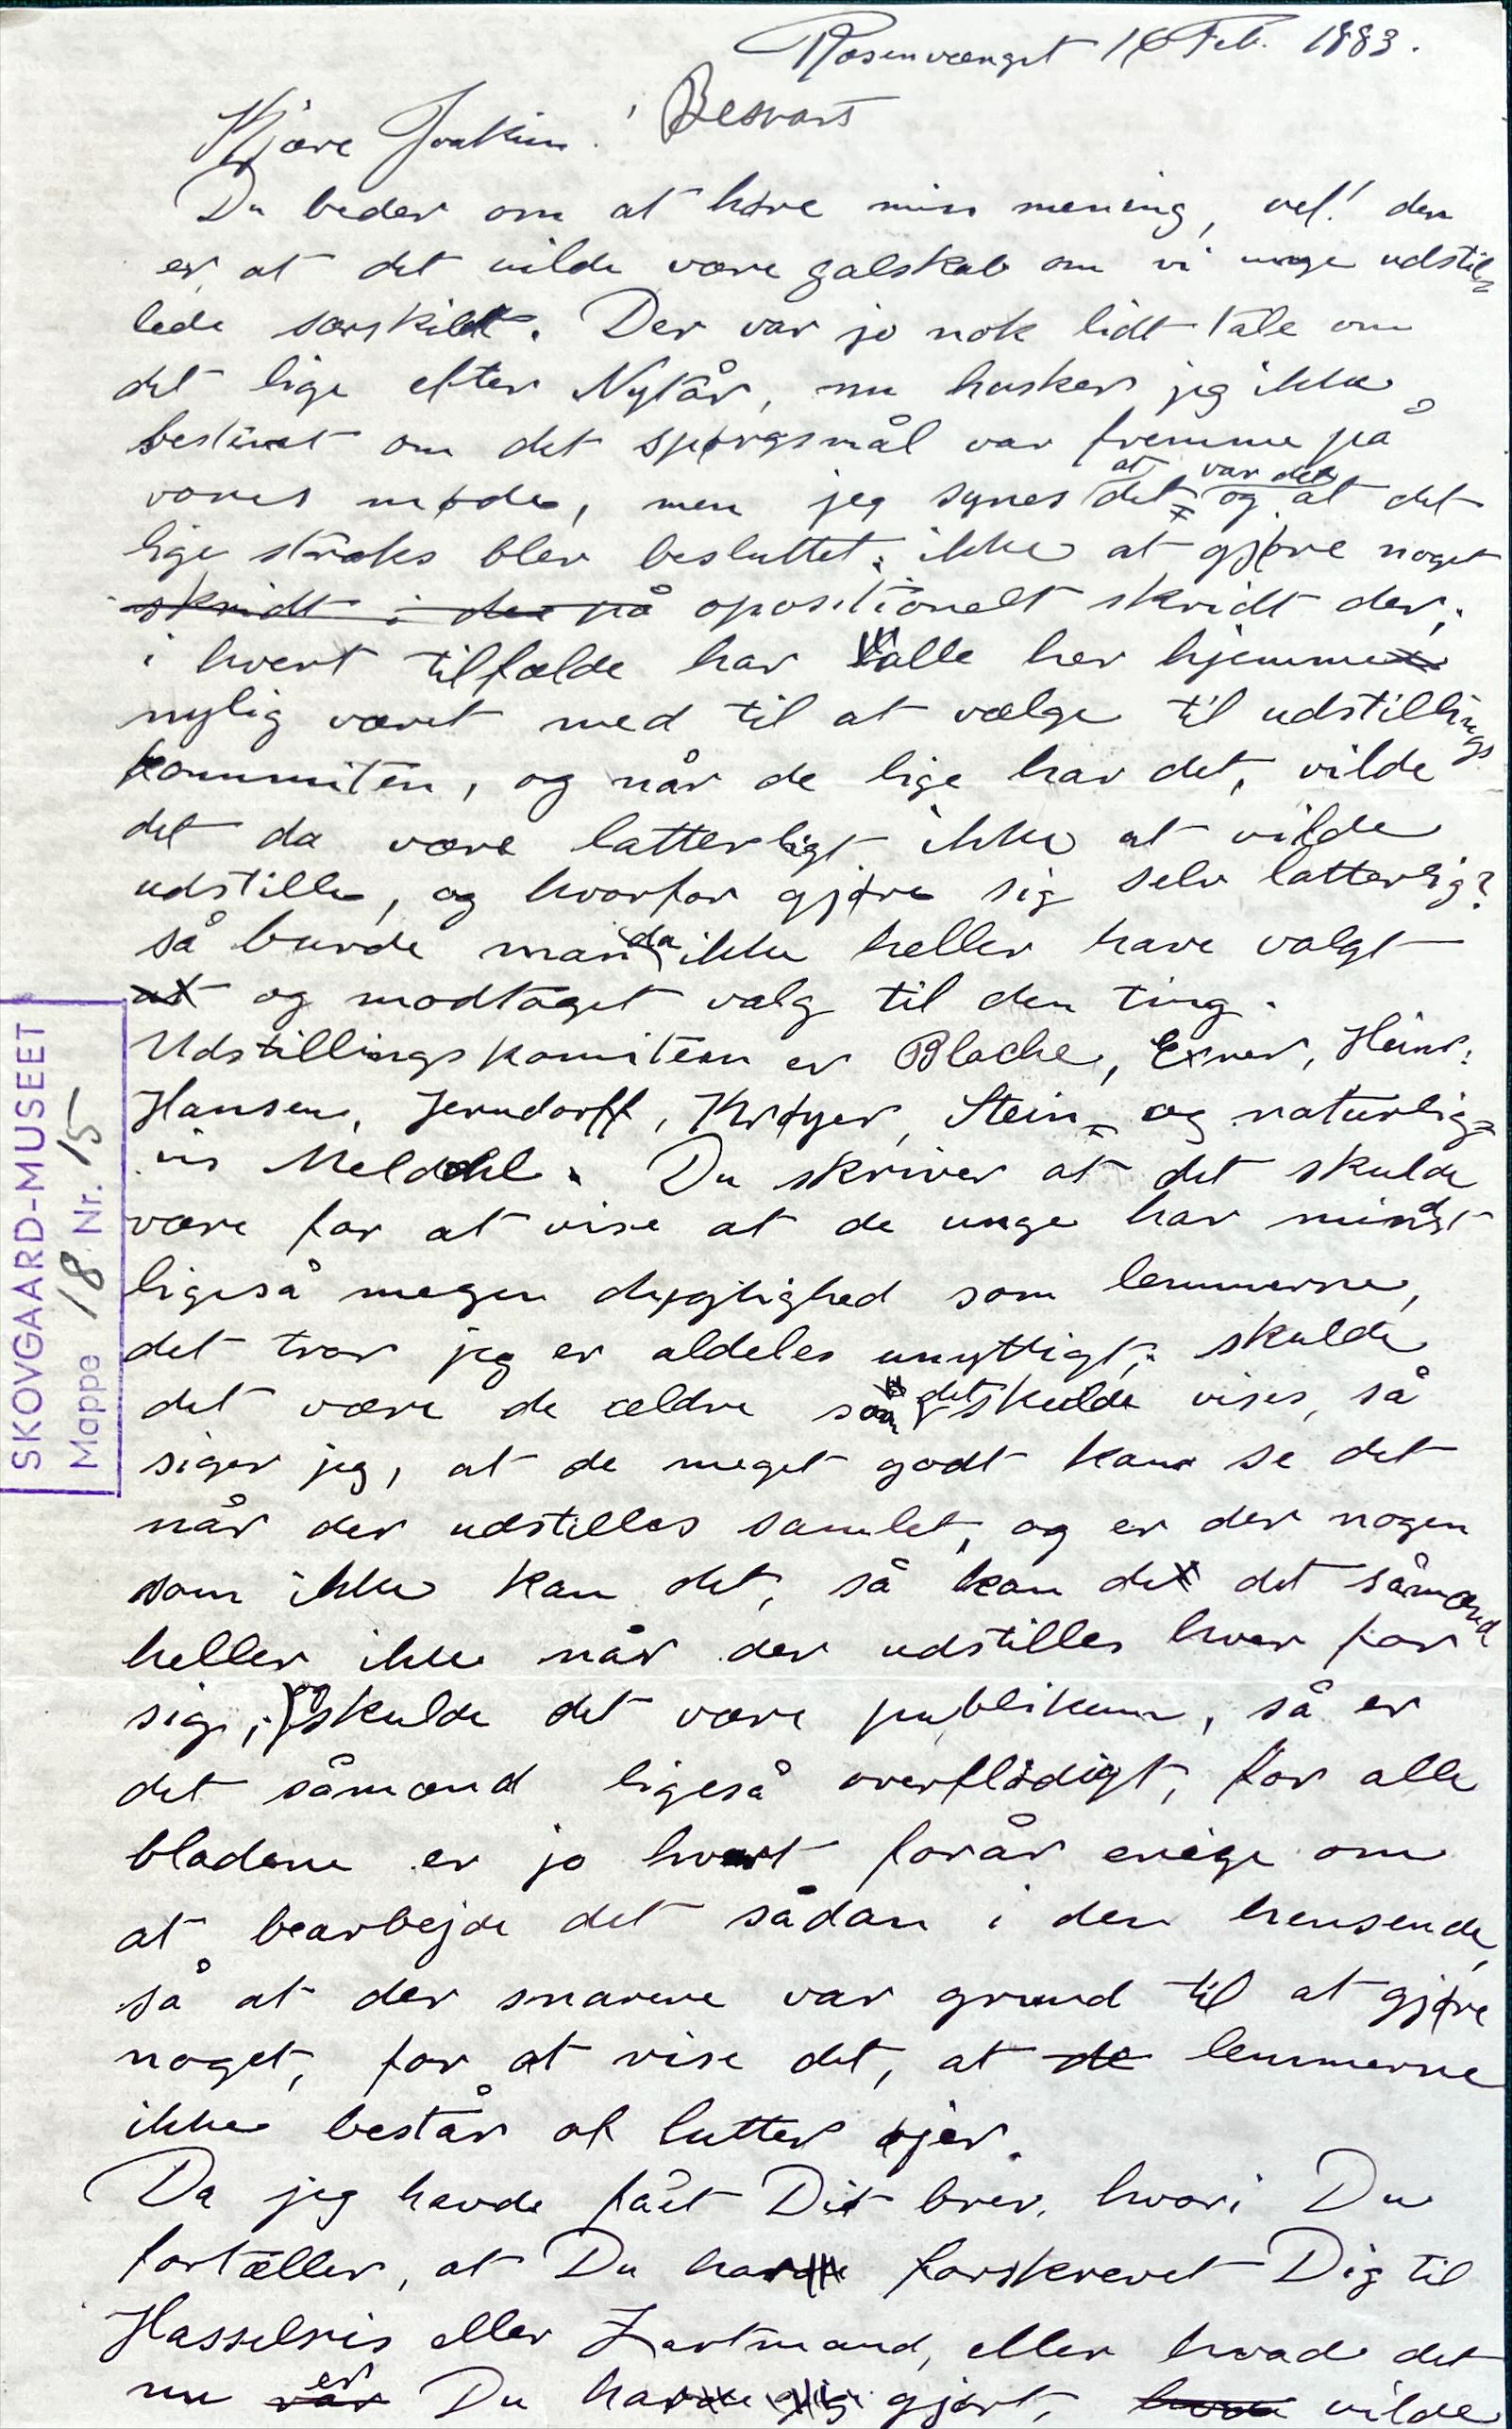 Rosenvænget 16 Feb. 1883.
Besvart
Kjære Joakim!
Du beder om at høre min mening, vel! den
er at det vilde være galskab om vi unge udstil=
lede særskildt. Der var jo nok lidt tale om
det lige efter Nytår, nu husker jeg ikke
bestemt om det spørgsmål var fremme på
vores møde, men jeg synes at det var det og at det
lige straks blev besluttet ikke at gjøre noget
skridt i den på opositionelt skridt der;
i hvert tilfælde har alle her hjemme
nylig været med til at vælge til udstillings
kommiten, og når de lige har det, vilde
det da være latterligt ikke at vilde
udstille, og hvorfor gjøre sig selv latterlig?
så burde man da ikke heller have valgt
at og modtaget valg til den ting.
Udstillingskomiteen er Blache, Exner, Heinr:
Hansen, Jerndorff, Krøyer, Stein, og naturlig=
vis Meldahl. Du skriver at det skulde
være for at vise at de unge har mindst
ligeså megen dygtighed som lemmerne,
det tror jeg er aldeles unyttigt; skulde
det være de ældre som det skulde vises, så
siger jeg, at de meget godt kan se det
når der udstilles samlet, og er der nogen
som ikke kan det, så kan det det såmænd
heller ikke når der udstilles hver for
sig; og skulde det være publikum, så er
det såmænd ligeså overflødigt, for alle
bladene er jo hvert forår enige om
at bearbejde det sådan i den henseende,
så at der snarere var grund til at gjøre
noget, for at vise det, at de lemmerne
ikke består af lutter øjer.
Da jeg havde fået Dit brev, hvori Du
fortæller, at Du har forskrevet Dig til
Hasselriis eller Zartmand, eller hvad det
nu var er Du har gjort, vilde
SKOVGAARD-MUSEET
Mappe 18 Nr. 15